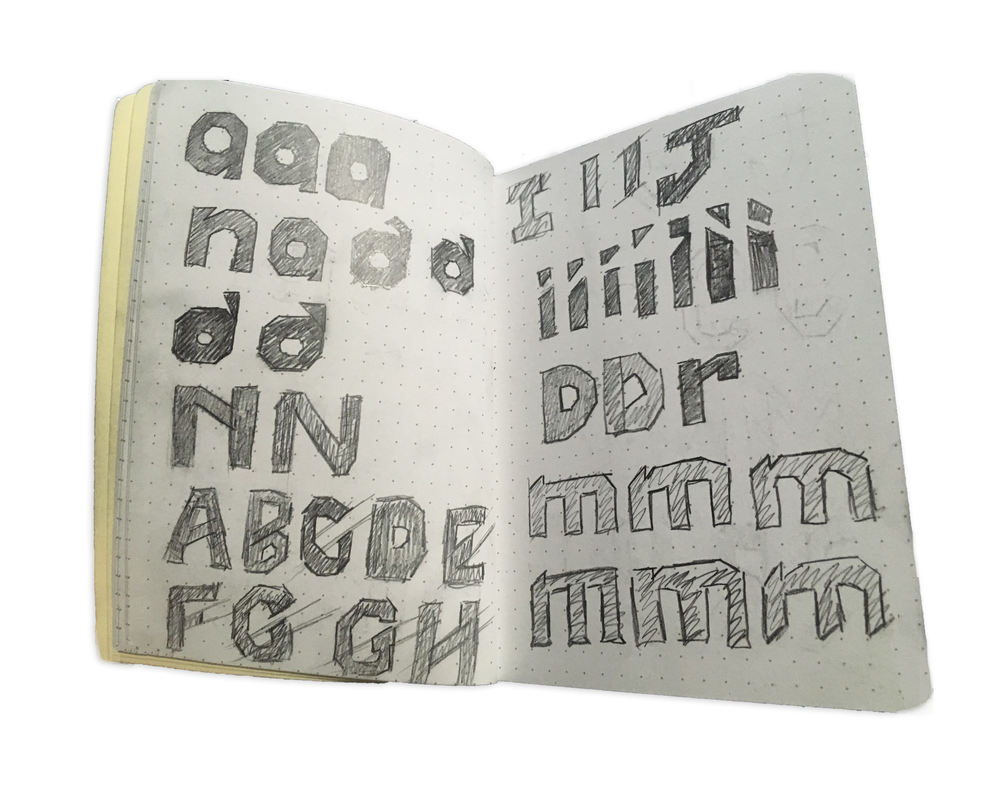 aaa
nadd
dd
NN
ABCDE
FGGH
IIIJ
iiiiiii
DDr
mmm
mmm